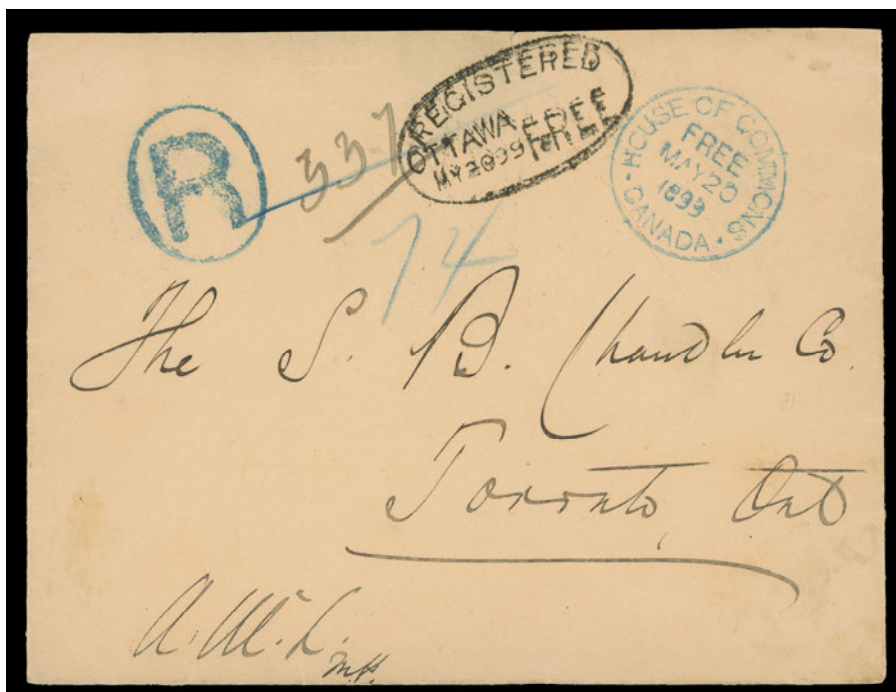 REGISTERED
OTTAWA FREE
MY 20 99
HOUSE OF COMMONS
FREE
MAY 20
1899
CANADA
R
337
74
The S. B. Chandler Co
Toronto, Ont
A. Mc. L.
M.P.